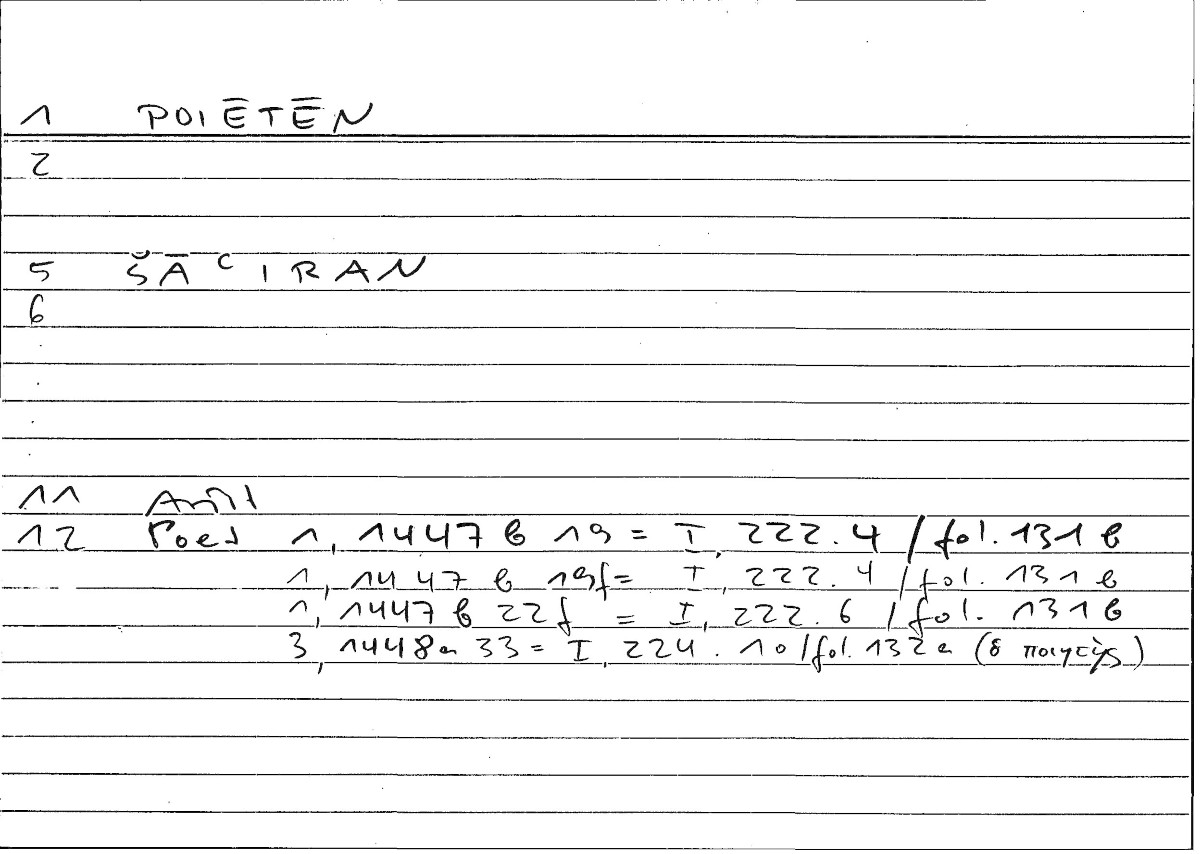 1 POIĒTĒN
2
5 ŠĀʿIRAN
6
11 Arist
12 Poet 1, 1447 b 19 = I, 222.4 / fol. 131 b
1, 1447 b 19f = I, 222.4 / fol. 131 b
1, 1447 b 22f = I, 222.6 / fol. 131 b
3, 1448a 33 = I, 224.10 / fol. 132a (ὁ ποιητής)